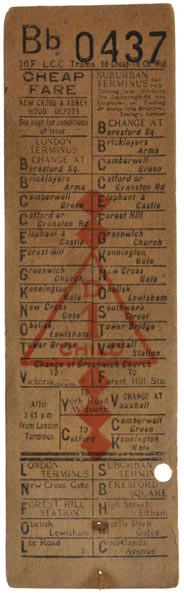 Bb 0437
16F L.C.C. Trams 2d Cheap
CHEAP
FARE
NEW CROSS & ABBEY
WOOD DEPOTS
See over for conditions
of issue
LONDON
TERMINUS
CHANGE AT
Beresford Sq.
Bricklayers
Arms
Camberwell
Green
Catford or
Cranston Rd
Elephant &
Castle
Forest Hill
Greenwich
Church
Kennington
Gate
New Cross
Gate
Obelisk,
Lewisham
Tower Bridge
Victoria
SUBURBAN
TERMINUS
CHANGE AT
Beresford Sq.
Bricklayers
Arms
Camberwell
Green
Catford or
Cranston Rd
Elephant &
Castle
Forest Hill
Greenwich
Church
Kennington
Gate
New Cross
Gate
Obelisk,
Lewisham
Southwark
Tower Bridge
Vauxhall
Station
Change at Greenwich Church
Forest Hill Stn.
CHILD
After
3.45 p.m.
from London
Terminus
To York Road
Wandsworth
To Catford
CHANGE AT
Vauxhall
Camberwell
Green
Kennington
Gate
LONDON
TERMINUS
New Cross Gate
FOREST HILL
STATION
Obelisk
Lewisham
Lee Road
SUBURBAN
TERMINUS
BERESFORD
SQUARE
High Street
Eltham
Middle Park
Gates
Courtlands
Avenue